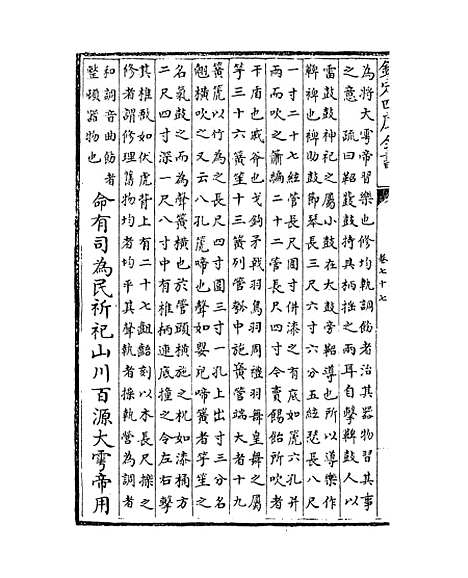 欽定四庫全書 卷七十七
為將大雩帝習樂也修均執調飭者治其器物習其事
之意 疏曰鞀鼗鼓持其柄揺之兩耳自擊鞞鼓人以
雷鼓鼓神祀之屬小鼓在大鼓旁鞀導也所以導樂作
鞞裨也裨助鼓節琴長三尺六寸六分五絃瑟長八尺
一寸二十七絃管長尺圍寸併漆之有底如篪六孔并
兩而吹之簫編二十二管長尺四寸今賣餳飴所吹者
干盾也戚斧也戈鉤矛戟羽鳥羽周禮羽舞皇舞之屬
竽三十六簧笙十三簧列管匏中施簧管端大者十九
簧篪以竹為之長尺四寸圍三寸一孔上出寸三分名
翹横吹之又云八孔篪啼也聲如嬰兒啼簧者竽笙之
名氣鼓之而為聲簧横也於管頭横施之柷如漆桶方
二尺四寸深一尺八寸中有椎柄連底撞之令左右擊
其椎敔如伏虎背上有二十七鉏鋙刻以木長尺擽之
修者謂修理舊物均者均平其聲執者操執營為調者
和調音曲飭者
整頓器物也
命有司為民祈祀山川百源大雩帝用